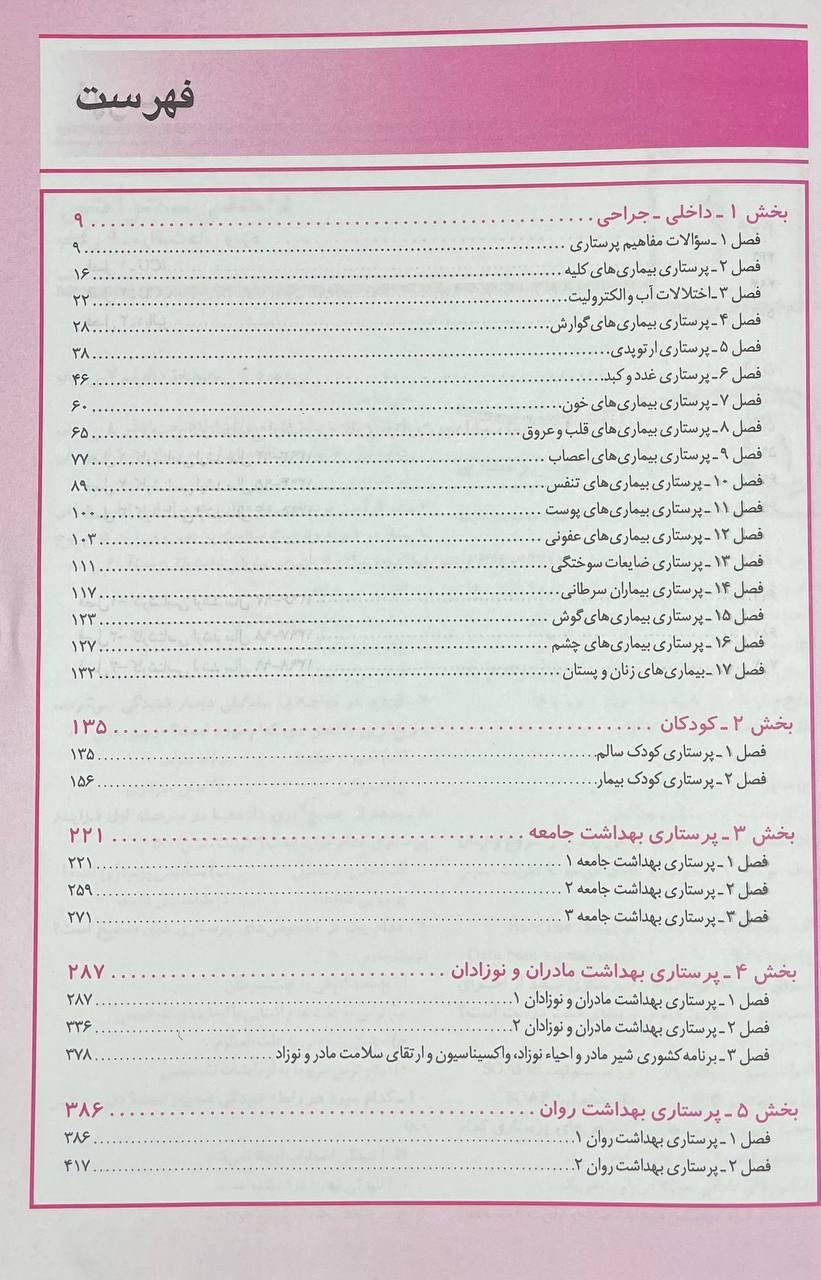 فهرست
بخش ۱ ـ داخلی ـ جراحی ........ ۹
فصل ۱ ـ سؤالات مفاهیم پرستاری ........ ۹
فصل ۲ ـ پرستاری بیماری‌های کلیه ........ ۱۶
فصل ۳ ـ اختلالات آب و الکترولیت ........ ۲۲
فصل ۴ ـ پرستاری بیماری‌های گوارش ........ ۲۸
فصل ۵ ـ پرستاری ارتوپدی ........ ۳۸
فصل ۶ ـ پرستاری غدد و کبد ........ ۴۶
فصل ۷ ـ پرستاری بیماری‌های خون ........ ۶۰
فصل ۸ ـ پرستاری بیماری‌های قلب و عروق ........ ۶۵
فصل ۹ ـ پرستاری بیماری‌های اعصاب ........ ۷۷
فصل ۱۰ ـ پرستاری بیماری‌های تنفس ........ ۸۹
فصل ۱۱ ـ پرستاری بیماری‌های پوست ........ ۱۰۰
فصل ۱۲ ـ پرستاری بیماری‌های عفونی ........ ۱۰۳
فصل ۱۳ ـ پرستاری ضایعات سوختگی ........ ۱۱۱
فصل ۱۴ ـ پرستاری بیماران سرطانی ........ ۱۱۷
فصل ۱۵ ـ پرستاری بیماری‌های گوش ........ ۱۲۳
فصل ۱۶ ـ پرستاری بیماری‌های چشم ........ ۱۲۷
فصل ۱۷ ـ بیماری‌های زنان و پستان ........ ۱۳۲
بخش ۲ ـ کودکان ........ ۱۳۵
فصل ۱ ـ پرستاری کودک سالم ........ ۱۳۵
فصل ۲ ـ پرستاری کودک بیمار ........ ۱۵۶
بخش ۳ ـ پرستاری بهداشت جامعه ........ ۲۲۱
فصل ۱ ـ پرستاری بهداشت جامعه ۱ ........ ۲۲۱
فصل ۲ ـ پرستاری بهداشت جامعه ۲ ........ ۲۵۹
فصل ۳ ـ پرستاری بهداشت جامعه ۳ ........ ۲۷۱
بخش ۴ ـ پرستاری بهداشت مادران و نوزادان ........ ۲۸۷
فصل ۱ ـ پرستاری بهداشت مادران و نوزادان ۱ ........ ۲۸۷
فصل ۲ ـ پرستاری بهداشت مادران و نوزادان ۲ ........ ۳۳۶
فصل ۳ ـ برنامه کشوری شیر مادر و احیاء نوزاد، واکسیناسیون و ارتقای سلامت مادر و نوزاد ........ ۳۷۸
بخش ۵ ـ پرستاری بهداشت روان ........ ۳۸۶
فصل ۱ ـ پرستاری بهداشت روان ۱ ........ ۳۸۶
فصل ۲ ـ پرستاری بهداشت روان ۲ ........ ۴۱۷